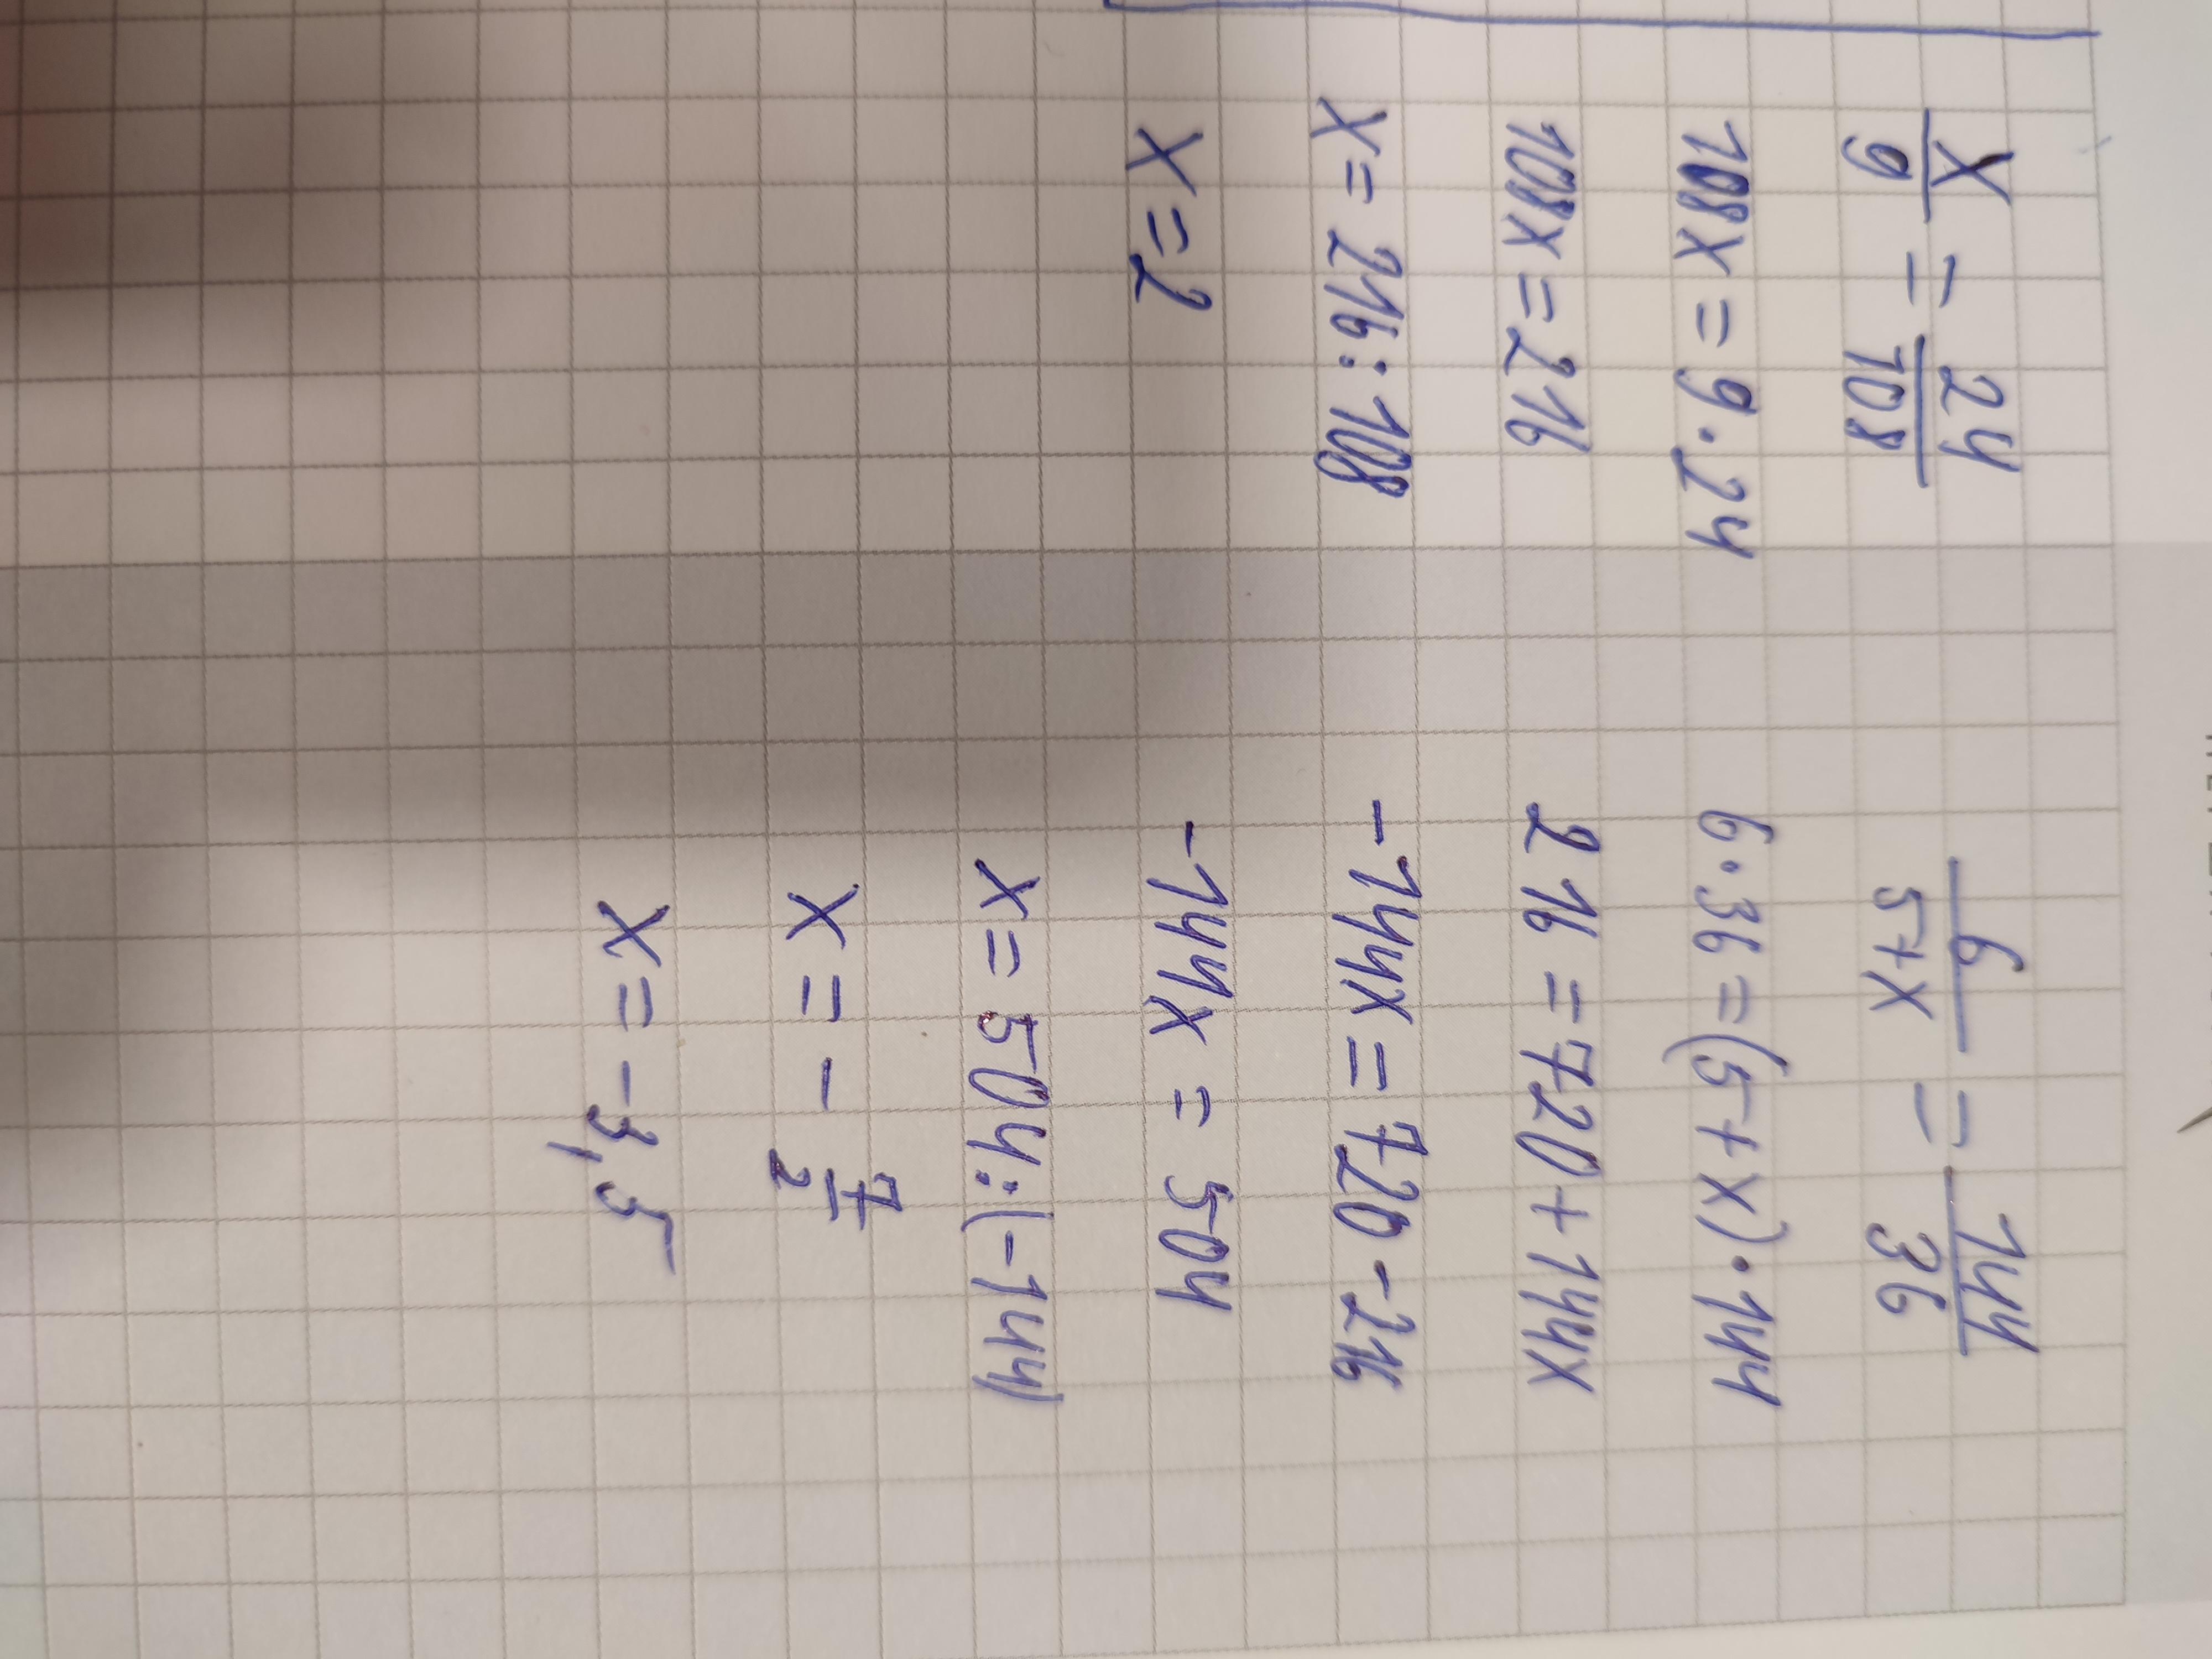 x/9 = 24/108
108x = 9·24
108x = 216
x = 216:108
x = 2
6/5+x = 144/36
6·36 = (5+x)·144
216 = 720+144x
-144x = 720-216
-144x = 504
x = 504:(-144)
x = - 7/2
x = -3,5